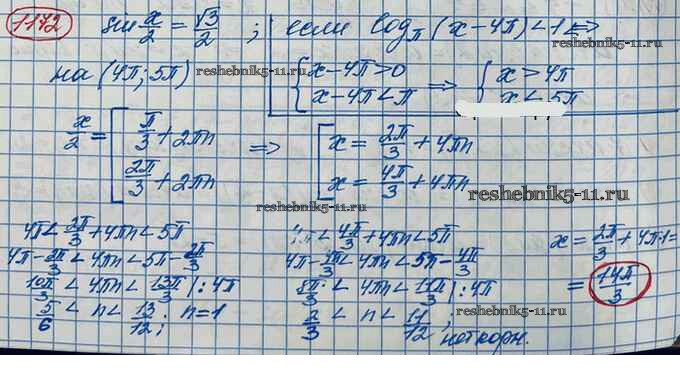 1172 sin x/2 = √3/2 ; если log_π (x-4π) < 1 <=>
на (4π; 5π) reshebnik5-11.ru { x-4π>0 x-4π<π => { x>4π x<5π reshebnik5-11.ru
x/2 = [ π/3 + 2πn 2π/3 + 2πn => [ x = 2π/3 + 4πn x = 4π/3 + 4πn
reshebnik5-11.ru
reshebnik5-11.ru
4π < 2π/3 + 4πn < 5π
4π - 2π/3 < 4πn < 5π - 2π/3
10π/3 < 4πn < 13π/3 | : 4π
5/6 < n < 13/12 ; n=1
< 4π/3 + 4πn < 5π
4π - 4π/3 < 4πn < 5π - 4π/3
8π/3 < 4πn < 11π/3 | : 4π
2/3 < n < 11/12 ; нет корн.
reshebnik5-11.ru
x = 2π/3 + 4π·1 =
= 14π/3